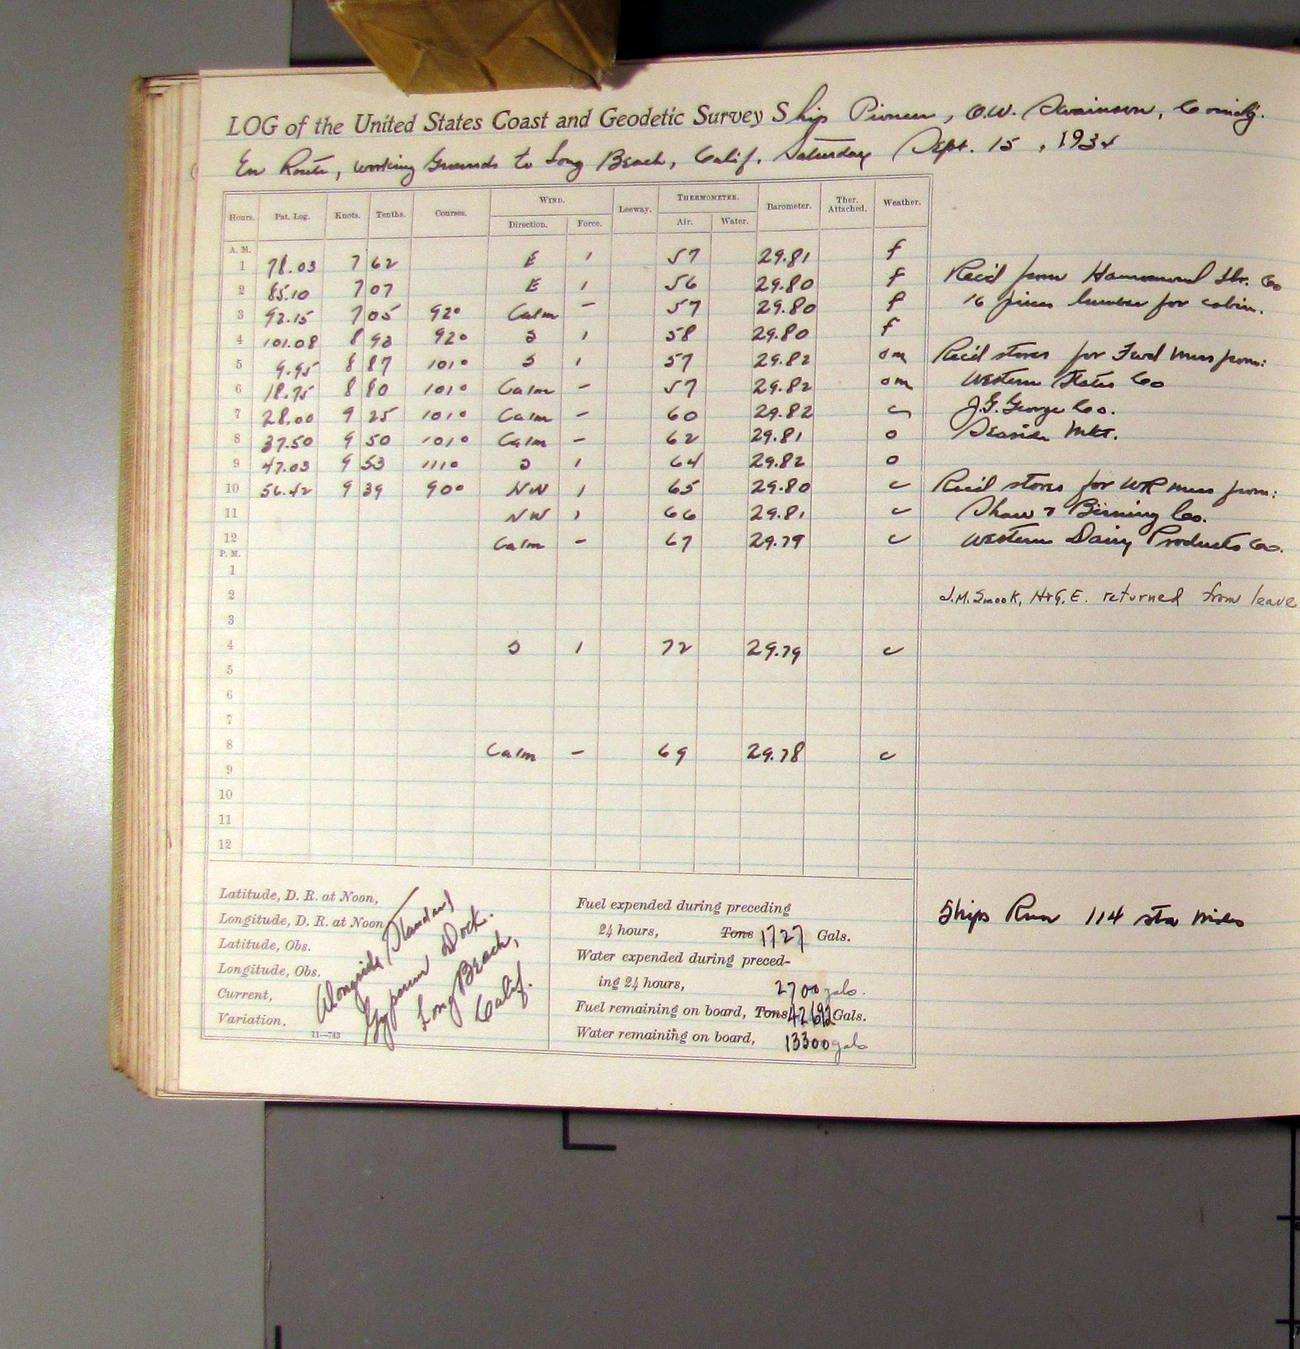 LOG of the United States Coast and Geodetic Survey Ship Pioneer, O.W. Swainson, Comdg.
En Route, working Grounds to Long Beach, Calif. Saturday Sept. 15, 1934
Hours. Pat. Log. Knots. Tenths. Courses. WIND. Direction. Force. Leeway. THERMOMETER. Air. Water. Barometer. Ther. Attached. Weather.
A. M.
1 78.03 7 62 E 1 57 29.81 f
2 85.10 7 07 E 1 56 29.80 f Rec'd from Hammond Lbr. Co
3 92.15 7 05 920 Calm - 57 29.80 f 16 pieces lumber for cabin.
4 101.08 8 93 920 S 1 58 29.80 f
5 9.95 8 87 1010 S 1 57 29.82 om Rec'd stores for Fwd Mess from:
6 18.75 8 80 1010 Calm - 57 29.82 om Western States Co
7 28.00 9 25 1010 Calm - 60 29.82 c J.G. George Co.
8 37.50 9 50 1010 Calm - 62 29.81 o Seaside Mkt.
9 47.03 9 53 1110 S 1 64 29.82 o
10 56.42 9 39 900 NW 1 65 29.80 c Rec'd stores for WR mess from:
11 NW 1 66 29.81 c Co.
12 Calm - 67 29.79 c Western Dairy Products Co.
P. M.
1
2 J.M. Smook, H+G.E. returned from leave
3
4 S 1 72 29.79 c
5
6
7
8 Calm - 69 29.78 c
9
10
11
12
Latitude, D. R. at Noon,
Longitude, D. R. at Noon
Latitude, Obs.
Longitude, Obs.
Current,
Variation,
11—743
Alongside Standard
Gypsum Dock.
Long Beach,
Calif.
Fuel expended during preceding
24 hours, Tons 1727 Gals.
Water expended during preced-
ing 24 hours, 2700 gals.
Fuel remaining on board, Tons Gals.
Water remaining on board, 13300 gals
Ships Run 114 sta miles